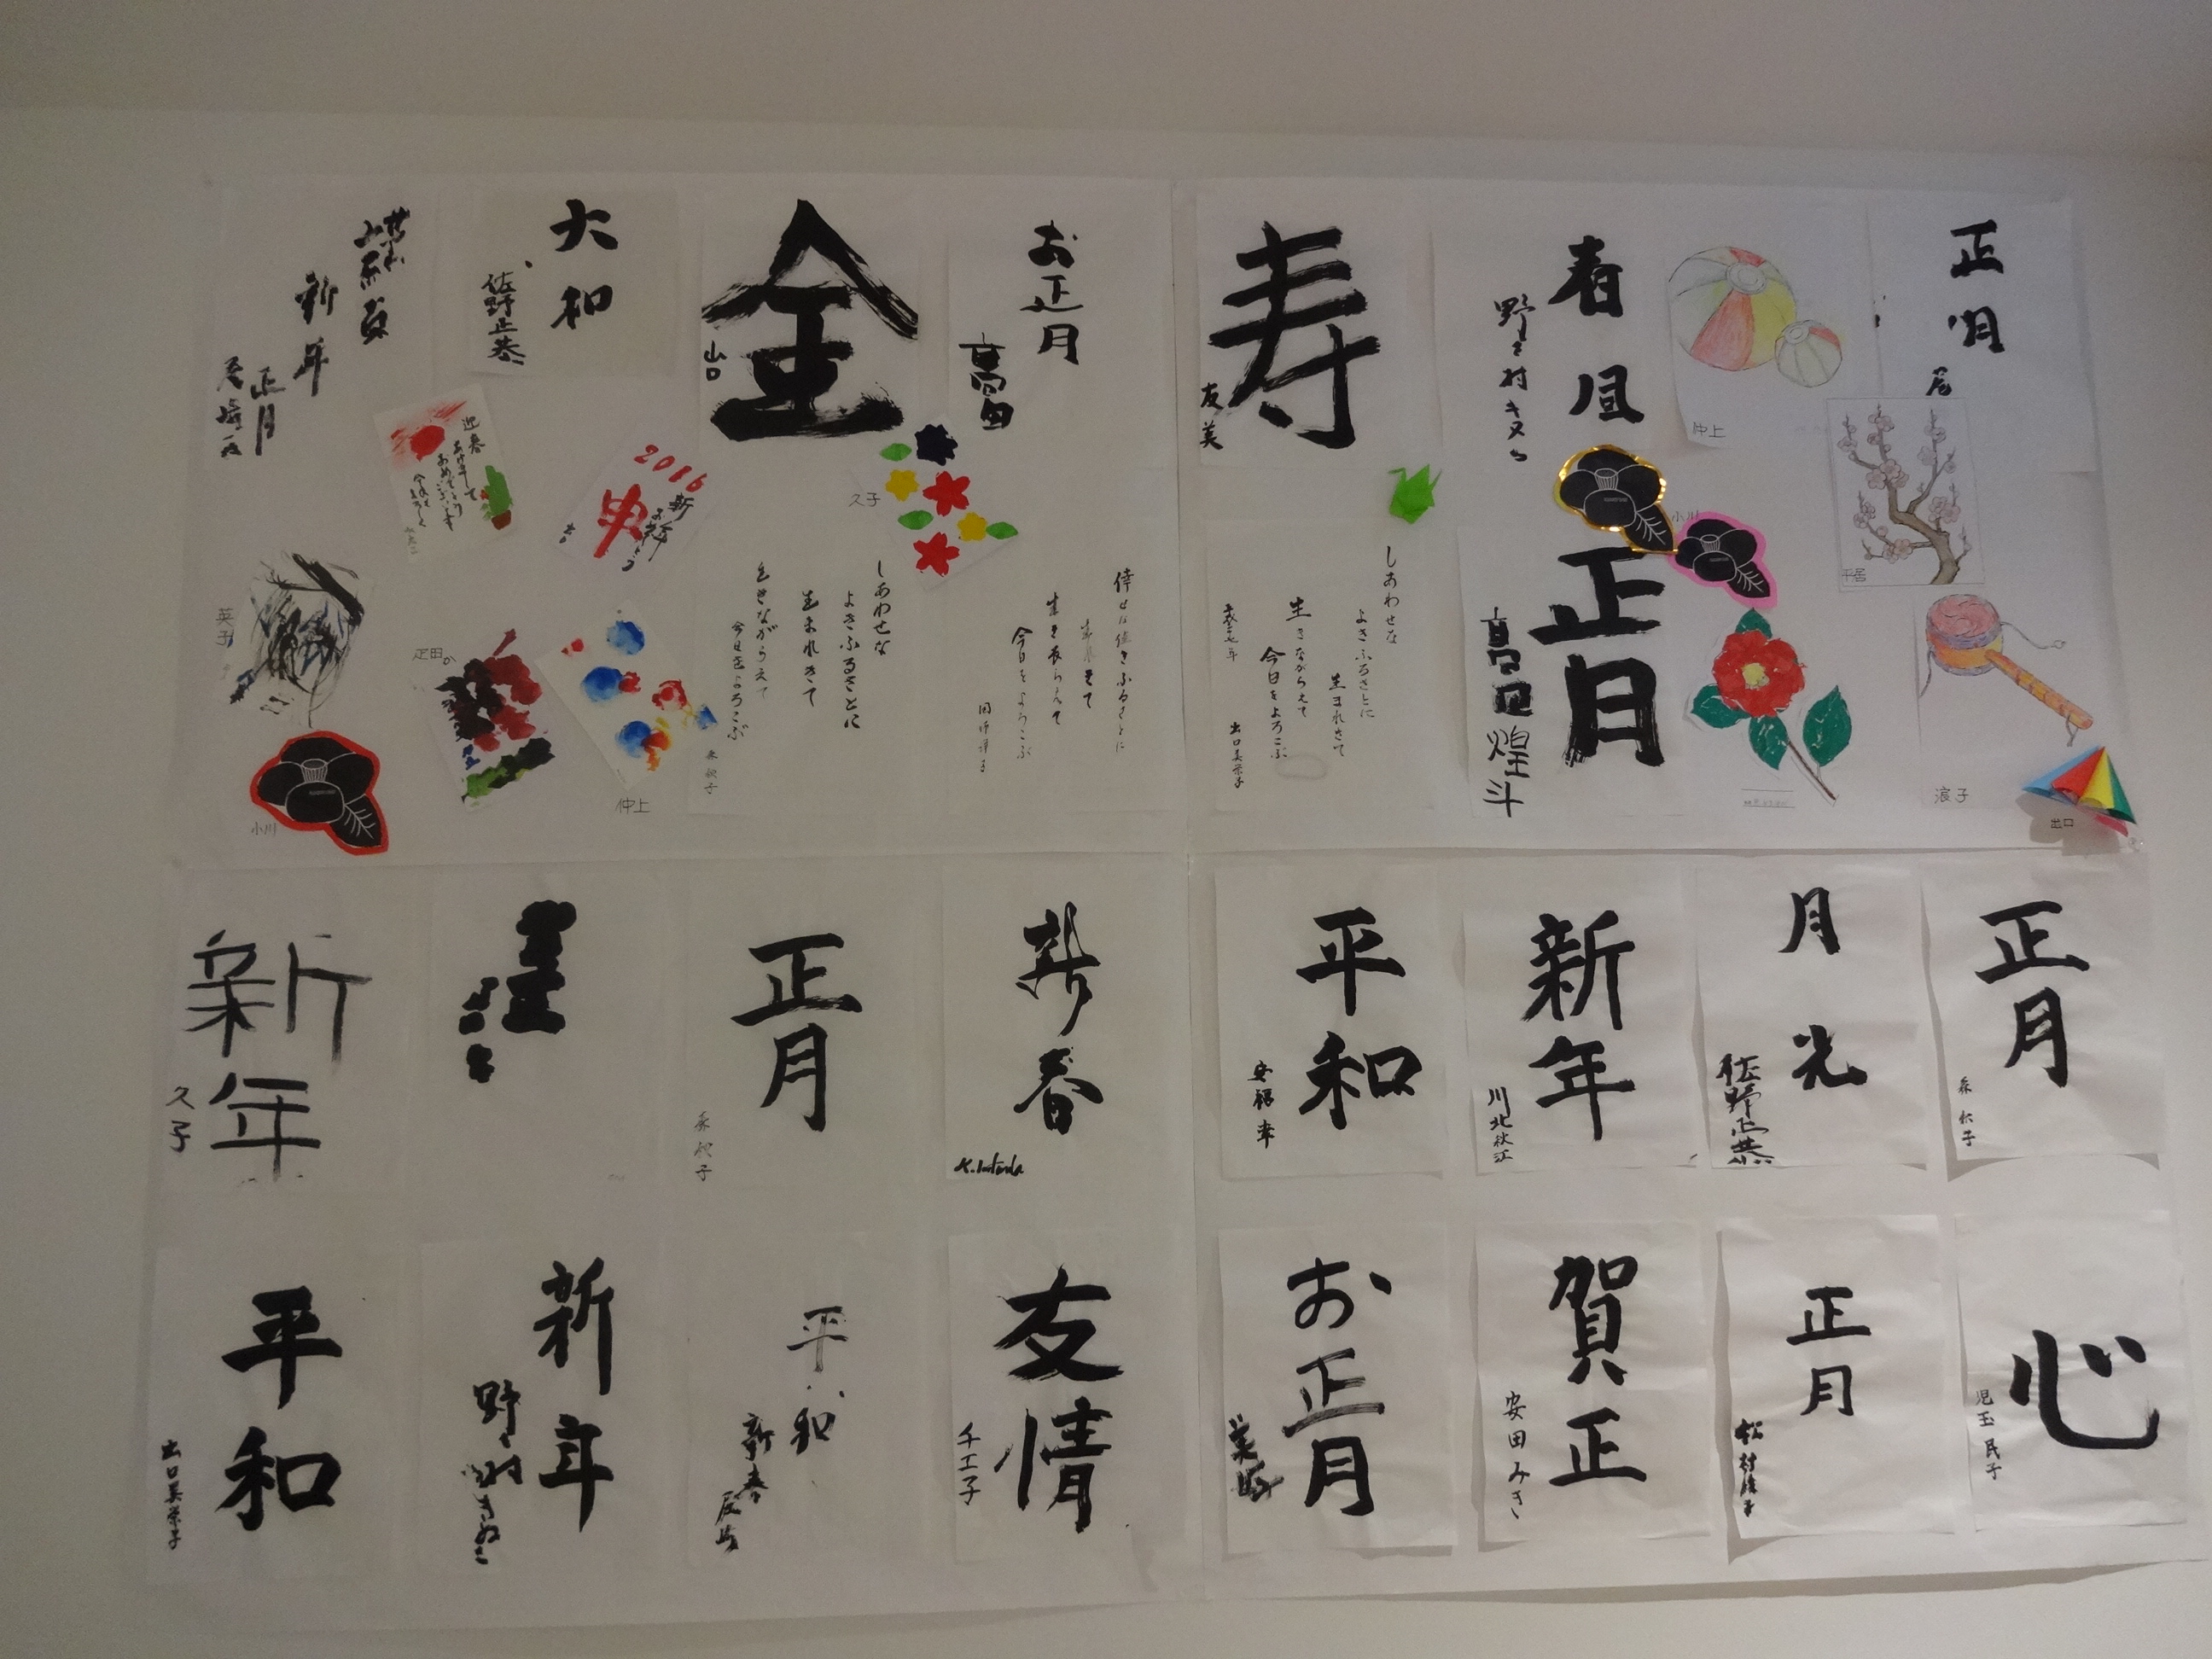 正月
尾
春風
野々村キヌ
寿
友美
お正月
高畠
金
山口
大和
佐野正恭
謹賀
新年
正月
尾崎
仲上
小川
平居
正月
高田煌斗
浪子
出口
しあわせな
よきふるさとに
生まれきて
生きながらえて
今日をよろこぶ
出口美栄子
倖せは佳きふるさとに
生れきて
生き長らえて
今日をよろこぶ
しあわせな
よきふるさとに
生まれきて
生きながらえて
今日をよろこぶ
森秋子
久子
2016
申
新春
迎春
あけまして
おめでとうございます
英子
疋田
仲上
小川
正月
森秋子
月光
佐野正恭
新年
川北秋江
平和
新春
正月
森秋子
新年
久子
心
児玉民子
正月
松村
賀正
安田みき
お正月
友情
千工子
平和
新春
尾崎
新年
野々村きぬ
平和
出口美栄子